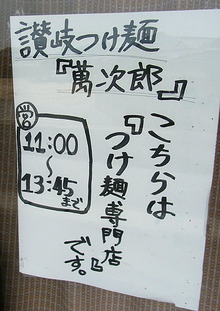 讃岐つけ麺
『萬次郎』
こちらは
『つけ麺専門店』
です。
営
11:00
～
13:45
まで